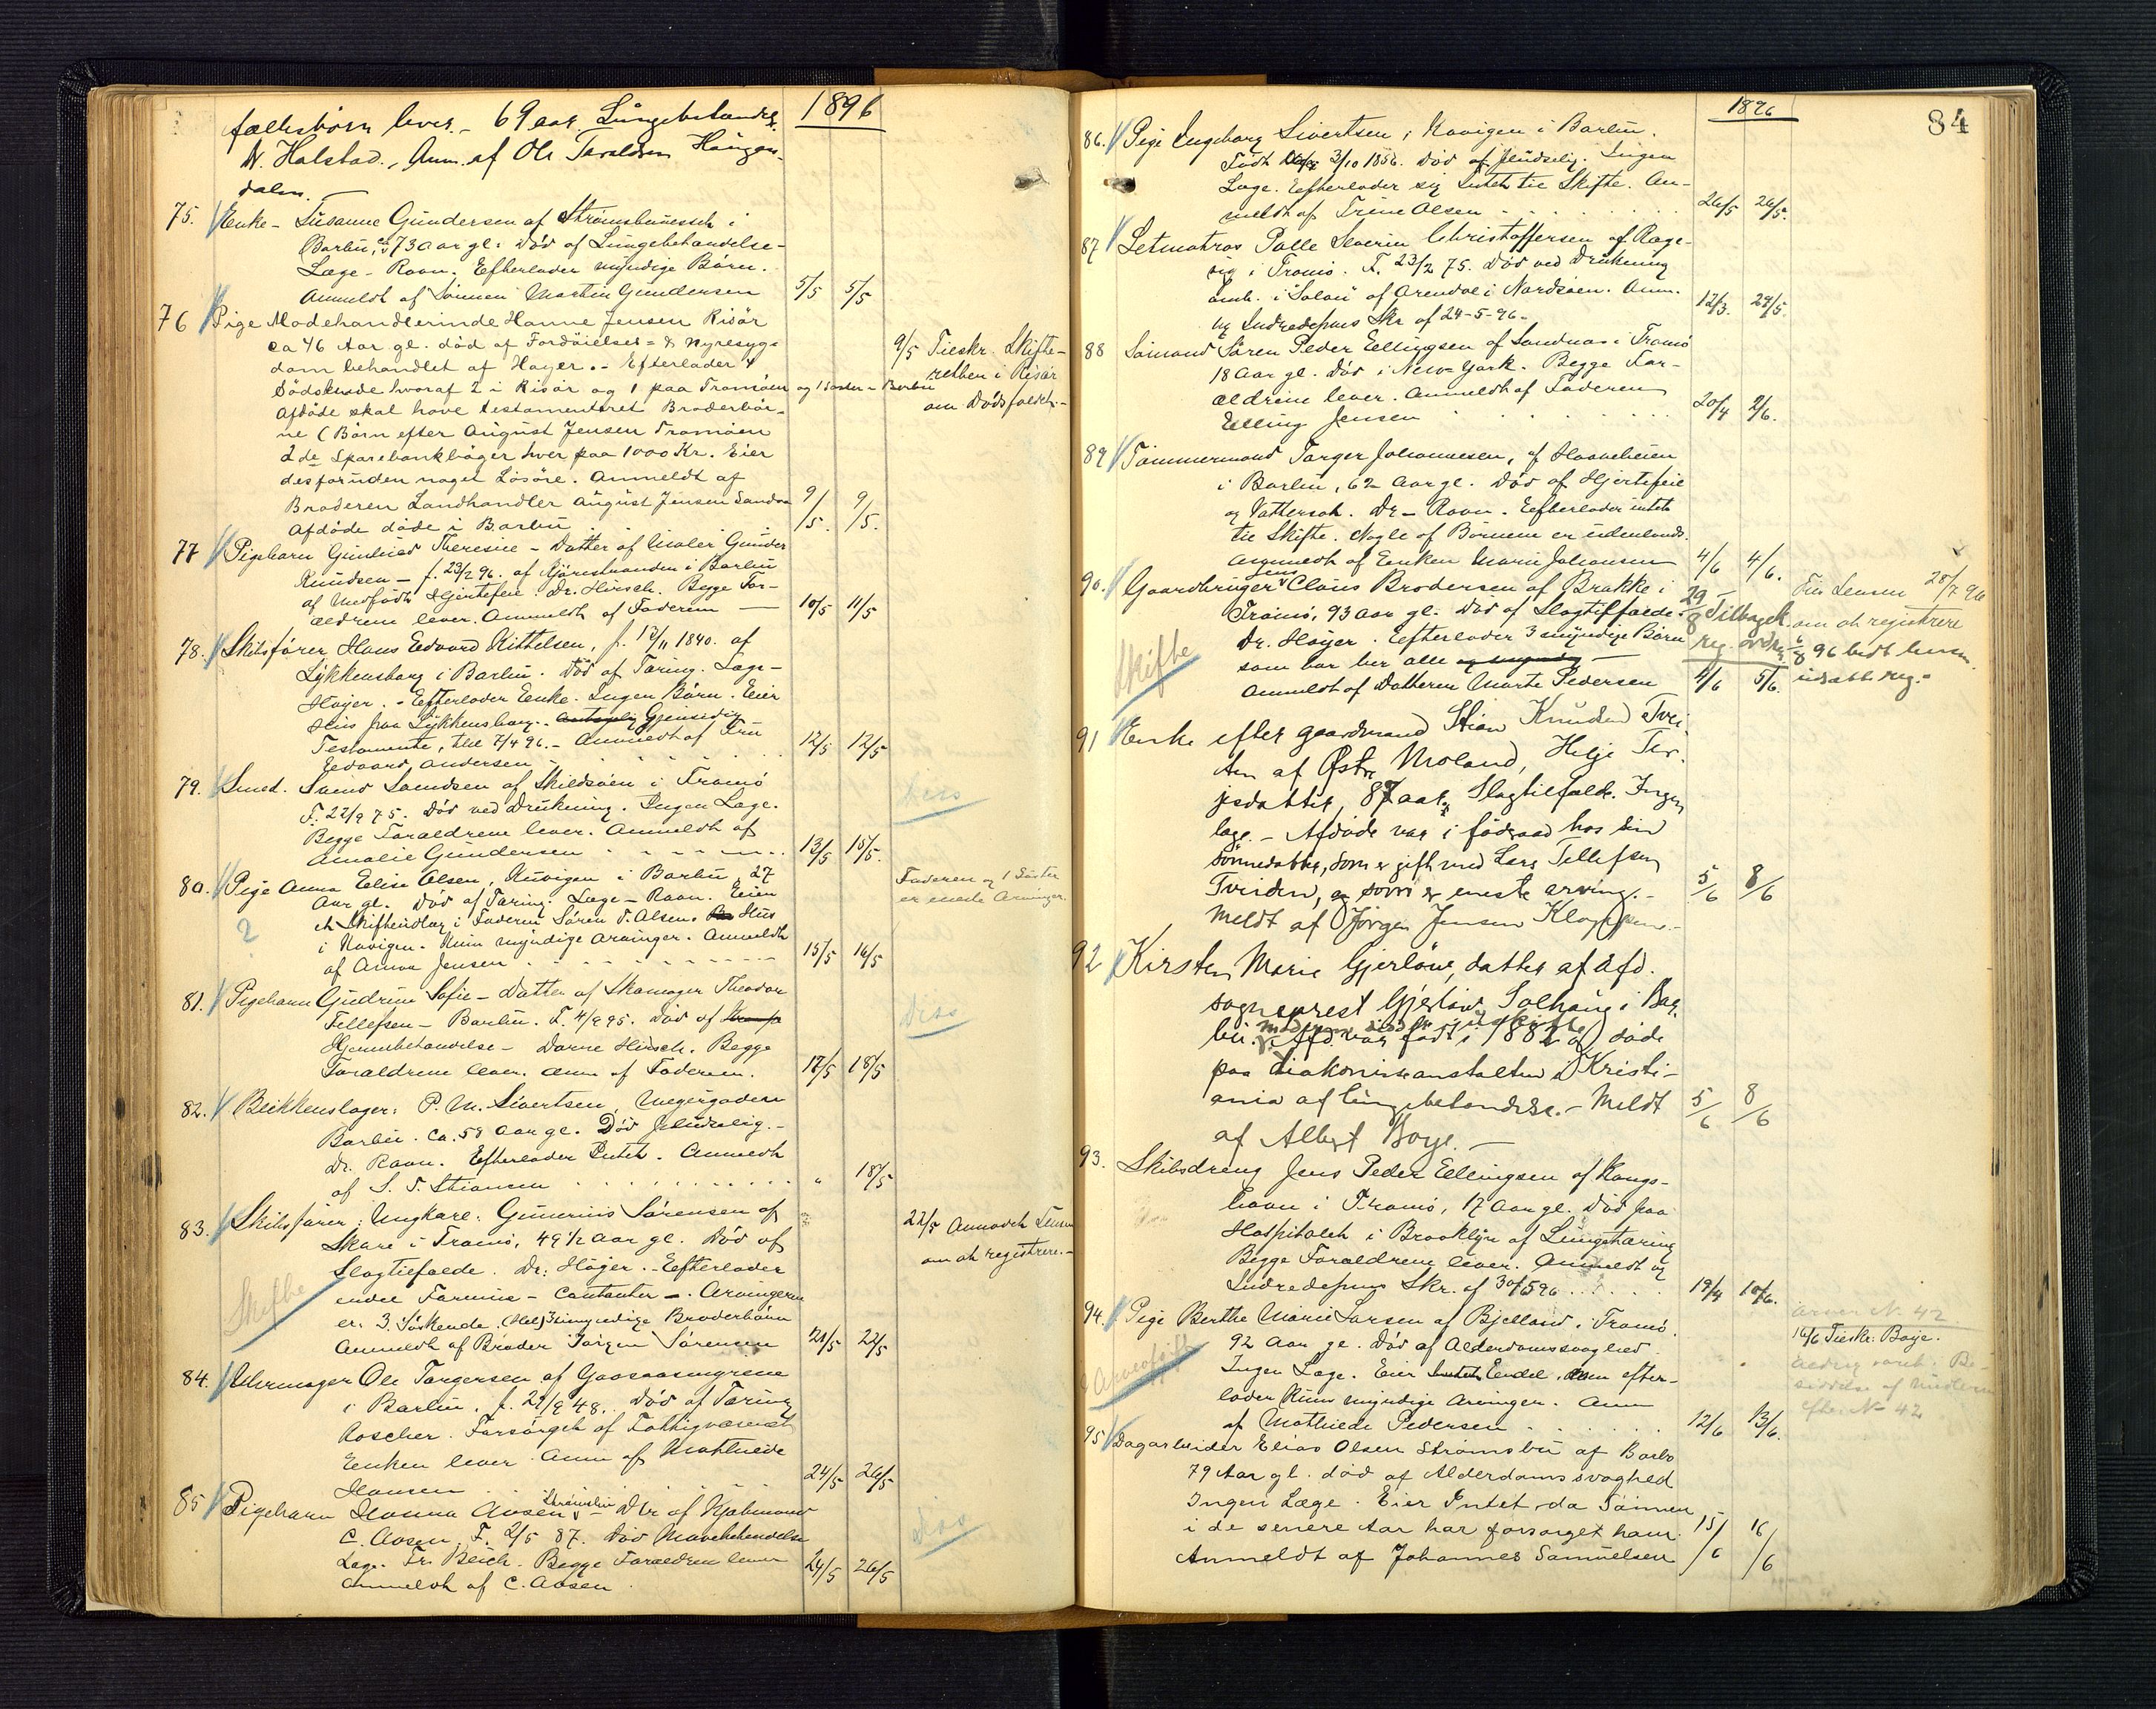 1896
fællesbörn lever. - 69 aar Lungebetændelse.
Dr. Halstad., Anm. af Ole Taraldsen Haugen-
dalen. -
75. Enke - Susanne Gundersen af Strömsbuneset i
Barbu, 73 aar gl: Död af Lungebetændelse -
Læge - Ravn. Efterlader myndige Börn.
Anmeldt af Sönnen Martin Gundersen 5/5 5/5
76 Pige Modehandlerinde Hanne Jensen Risör
ca 46 Aar gl. död af Fordöielses- & Nyresyg-
dom behandlet af Høyer. - Efterlader 4
Södskende hvoraf 2 i Risör og 1 paa Tromöen og 1 Söster - Barbu
Afdöde skal have testamenteret Broderbör-
ne (Börn efter August Jensen Tromöen
2de Sparebankböger hver paa 1000 Kr. Eier
desforuden noget Lösöre. Anmeldt af
Broderen Landhandler August Jensen Sandna
Afdöde döde i Barbu 9/5 9/5.
9/5 Tilskr. Skifte-
retten i Risör
om Dödsfaldet. -
77 Pigebarn Gunhild Theresie - Datter af Maler Gunder
Knudsen - f. 23/2 96. af Kjörestranden i Barbu
af Medfödt Hjertefeil. Dr. Hirsch. Begge For-
ældrene lever. Anmeldt af Faderen - 10/5 11/5
78. Skibsförer Hans Edvard Kittelsen, f. 13/11 1840. af
Lykkensborg i Barbu. Död af Tæring. Læge -
Høyer. - Efterlader Enke. Ingen Börn. Eier
Hus paa Lykkensborg. Gjensidig
Testamente, 7/4 96. - Anmeldt af Fru
Edvard Andersen 12/5 12/5
79. Smed. Svend Svendsen af Skilsöen i Tromö
F. 22/9 75. Död ved Drukning. Ingen Læge.
Begge Forældrene lever. Anmeldt af
Amalie Gundersen 13/5 15/5.
80. Pige Anna Elise Olsen, Kuvigen i Barbu, 27
Aar gl. Död af Tæring. Læge - Ravn. Eier
et Skifteudlæg i Faderen Sören T. Olsens Hus
i Kuvigen. Kun myndige Arvinger. Anmeldt
af Anna Jensen 15/5 16/5
?
Faderen og 1 Söster
er eneste Arvinger.
81. Pigebarn Gudrun Sofie - Datter af Skomager Theodor
Tellefsen - Barbu. F. 4/9 95. Död af
Hjernebetændelse - Hirsch. Begge
Forældrene lever. Anm af Faderen. 17/5 18/5
Diss
82. Blikkenslager: P. M. Sivertsen,
Barbu. Ca. 58 Aar gl. Död pludselig. -
Dr. Ravn. Efterlader Intet. Anmeldt
af S. T. Stiansen " 18/5
83. Skibsförer: Ungkarl: Gunerius Sörensen af
Skare i Tromö, 49 1/2 Aar gl. Död af
Slagtilfælde. Dr: Höyer. - Efterlader
endel Formue - Contanter -. Arvingerne
er: 3 Söskende. (Hel) 3 umyndige Broderbörn
Anmeldt af Broder Jörgen Sörensen 21/5 22/5
Skifte
22/5 Anmodet Lensm
om at registrere. -
84. Uhrmager Ole Torgersen af Gaasaasmyrene
i Barbu. f. 29/9 48. Död af Tæring
Roscher. Forsörget af Fattigvæsenet
Enken lever Anm af Mathilde
Hansen 24/5 26/5
85 Pigebarn Hanna Aasen Strömsbu - Dtr af Kjöbmand
C. Aasen. F. 2/5 87. Död Mavebetændelse
Læge Fr. Bleich. Begge Forældrene lever
Anmeldt af C. Aasen. 24/5 26/5
Diss
1896
84
86. Pige Ingeborg Sivertsen, Kuvigen i Barbu.
Födt 3/10 1856. Död af pludselig. Ingen
Læge. Efterlader sig Intet til Skifte. An-
meldt af Trine Olsen 26/5 26/5.
87 Letmatros Palle Severin Christoffersen af Rage-
vig i Tromö. F. 23/2 75. Död ved Drukning
ombr. i "Solon" af Arendal i Nordsöen. Anm.
ved Indredeptets Skr af 24-5-96. 12/3. 29/5.
88 Sömand Sören Peder Ellingsen af Sandnæs i Tromö
18 Aar gl. Död i New-York. Begge For-
ældrene lever. Anmeldt af Faderen
Elling Jensen 20/4 2/6.
89 Tömmermand Torger Johannesen, af Haaveheien
i Barbu, 62 Aar gl. Död af Hjertefeil
og Vattersot. Dr - Ravn. Efterlader intet
til Skifte. Nogle af Börnene er udenlands.
Anmeldt af Enken Marie Johansen 4/6 4/6.
90. Gaardbruger Jens Claus Brodersen af Brække i
Tromö, 93 Aar gl. Död af Slagtilfælde.
Dr. Höyer. Efterlader 3 myndige Börn
som bor her alle
Anmeldt af Datteren Marte Pedersen 4/6 5/6.
Skifte
29/8 Tilbagek.
reg.
Lensm 28/7 96
om at registrere
8 96 bedt lensm.
udsætte reg.
91 Enke efter gaardmand Stian Knudsen Tvei-
ten af Østre Moland, Helje Ter-
jesdatter, 87 aar, Slagtilfælde. Ingen
læge. - Afdöde var i föderaad hos sin
sönnedatter, som er gift med Lars Tellefsen
Tveiten, og som er eneste arving. -
Meldt af Jörgen Jensen Kloppene. - 5/6 8/6
92 Kirsten Marie Gjerlöw, datter af afd.
sogneprest Gjerlöw Solhaug i Bar-
bu. Afd. var födt i 1882 og döde
paa diakonisseanstalten i Kristi-
ania af lungebetændelse. - Meldt
af Albert Boye. - 5/6 8/6
93. Skibsdreng Jens Peder Ellingsen af Kongs-
havn i Tromö, 17 Aar gl. Död paa
Hospitalet i Brooklyn af Lungetæring
Begge Forældrene lever. Anmeldt ved
Indredeptets Skr. af 30/5 96 19/4 10/6.
94. Pige Berthe Marie Larsen af Bjelland i Tromö.
92 Aar gl. Död af Alderdomssvaghed
Ingen Læge. Eier Endel, efter-
lader Kun myndige Arvinger. Anm
af Mathilde Pedersen 12/6 13/6.
N. 42
16/6 Tilskr. Boye.
95 Dagarbeider Elias Olsen Strömsbu af Barbo
79 Aar gl. död af Alderdomssvaghed
Ingen Læge. Eier Intet, da Sönnen
i de senere Aar har forsörget ham.
Anmeldt af Johannes Samuelsen 15/6 16/6